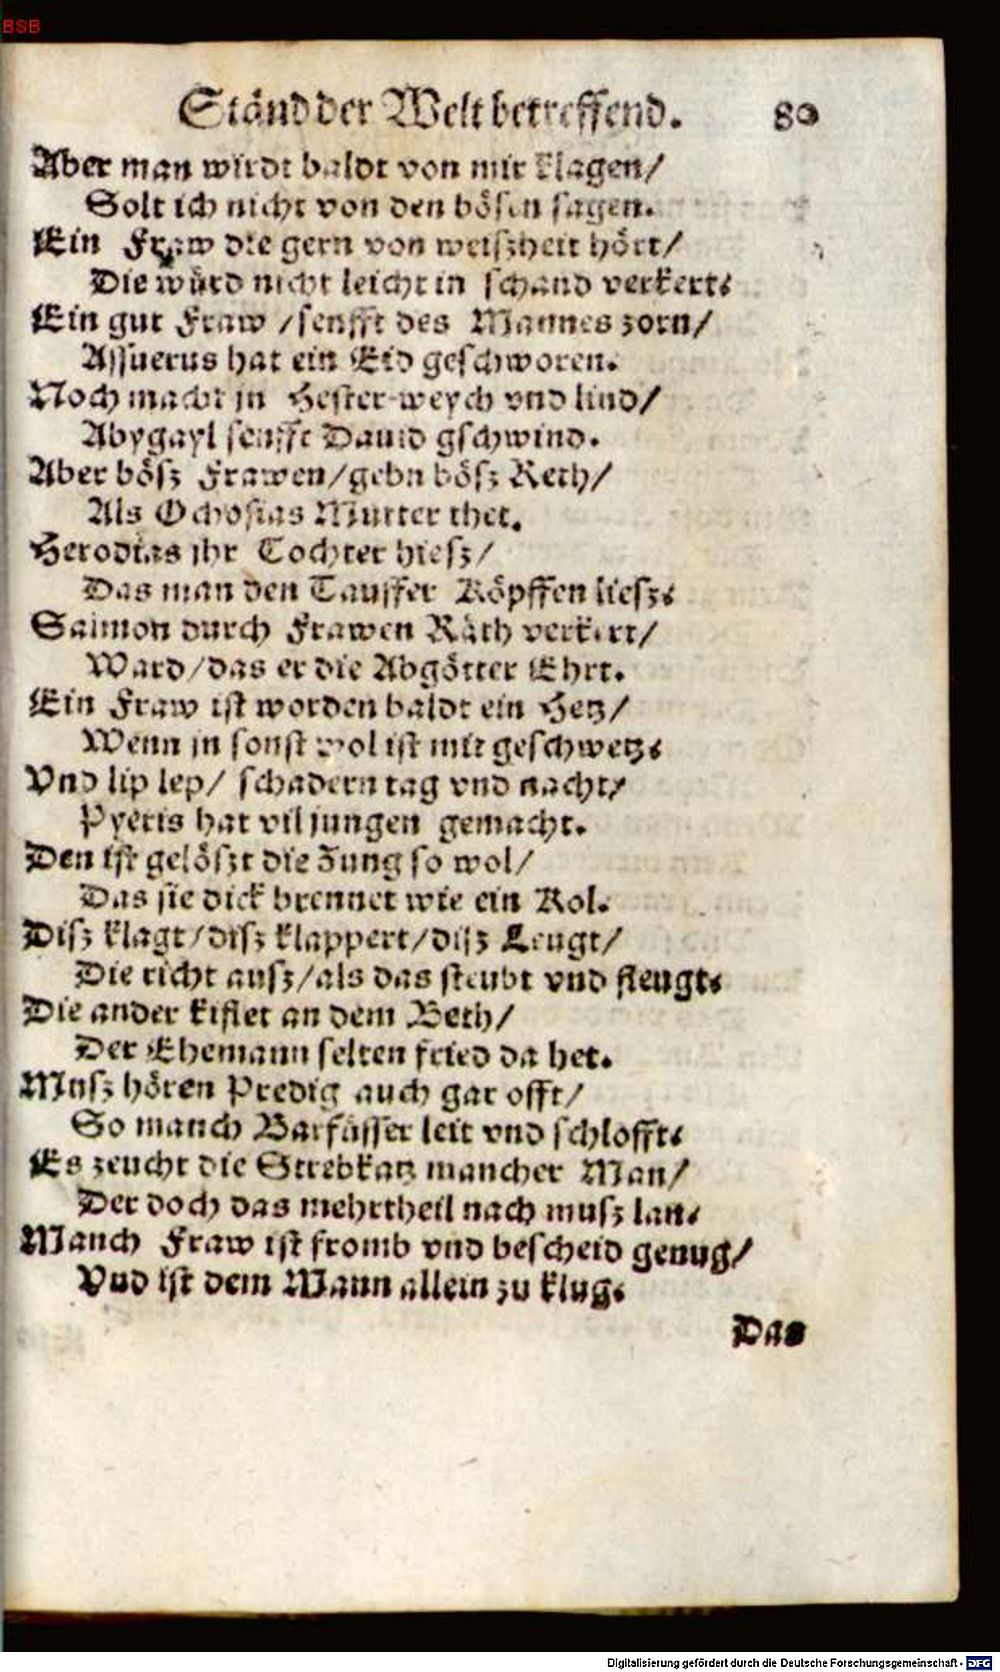 BSB
Ständ der Welt betreffend. 80
Aber man wirdt baldt von mir klagen/
Solt ich nicht von den bösen sagen.
Ein Fraw die gern von weiszheit hört/
Die würd nicht leicht in schand verkert.
Ein gut Fraw /senfft des Mannes zorn/
Assuerus hat ein Eid geschworen.
Noch macht jn Hester weych vnd lind/
Abygayl senfft Dauid gschwind.
Aber bösz Frawen/gebn bösz Reth/
Als Ochosias Mutter thet.
Herodias jhr Tochter hiesz/
Das man den Tauffer Köpffen liesz.
Salmon durch Frawen Räth verkert/
Ward/das er die Abgötter Ehrt.
Ein Fraw ist worden baldt ein Hetz/
Wenn jn sonst wol ist mit geschwetz.
Vnd lip lep/ schadern tag vnd nacht/
Pyeris hat vil jungen gemacht.
Den ist gelöszt die Zung so wol/
Das sie dick brennet wie ein Kol.
Disz klagt/disz klappert/disz Leugt/
Die richt ausz/als das steubt vnd fleugt.
Die ander kiflet an dem Beth/
Der Ehemann selten fried da het.
Musz hören Predig auch gar offt/
So manch Barfüsser leit vnd schlofft.
Es zeucht die Strebkatz mancher Man/
Der doch das mehrtheil nach musz lan.
Manch Fraw ist fromb vnd bescheid genug/
Vnd ist dem Mann allein zu klug.
Das
Digitalisierung gefördert durch die Deutsche Forschungsgemeinschaft - DFG